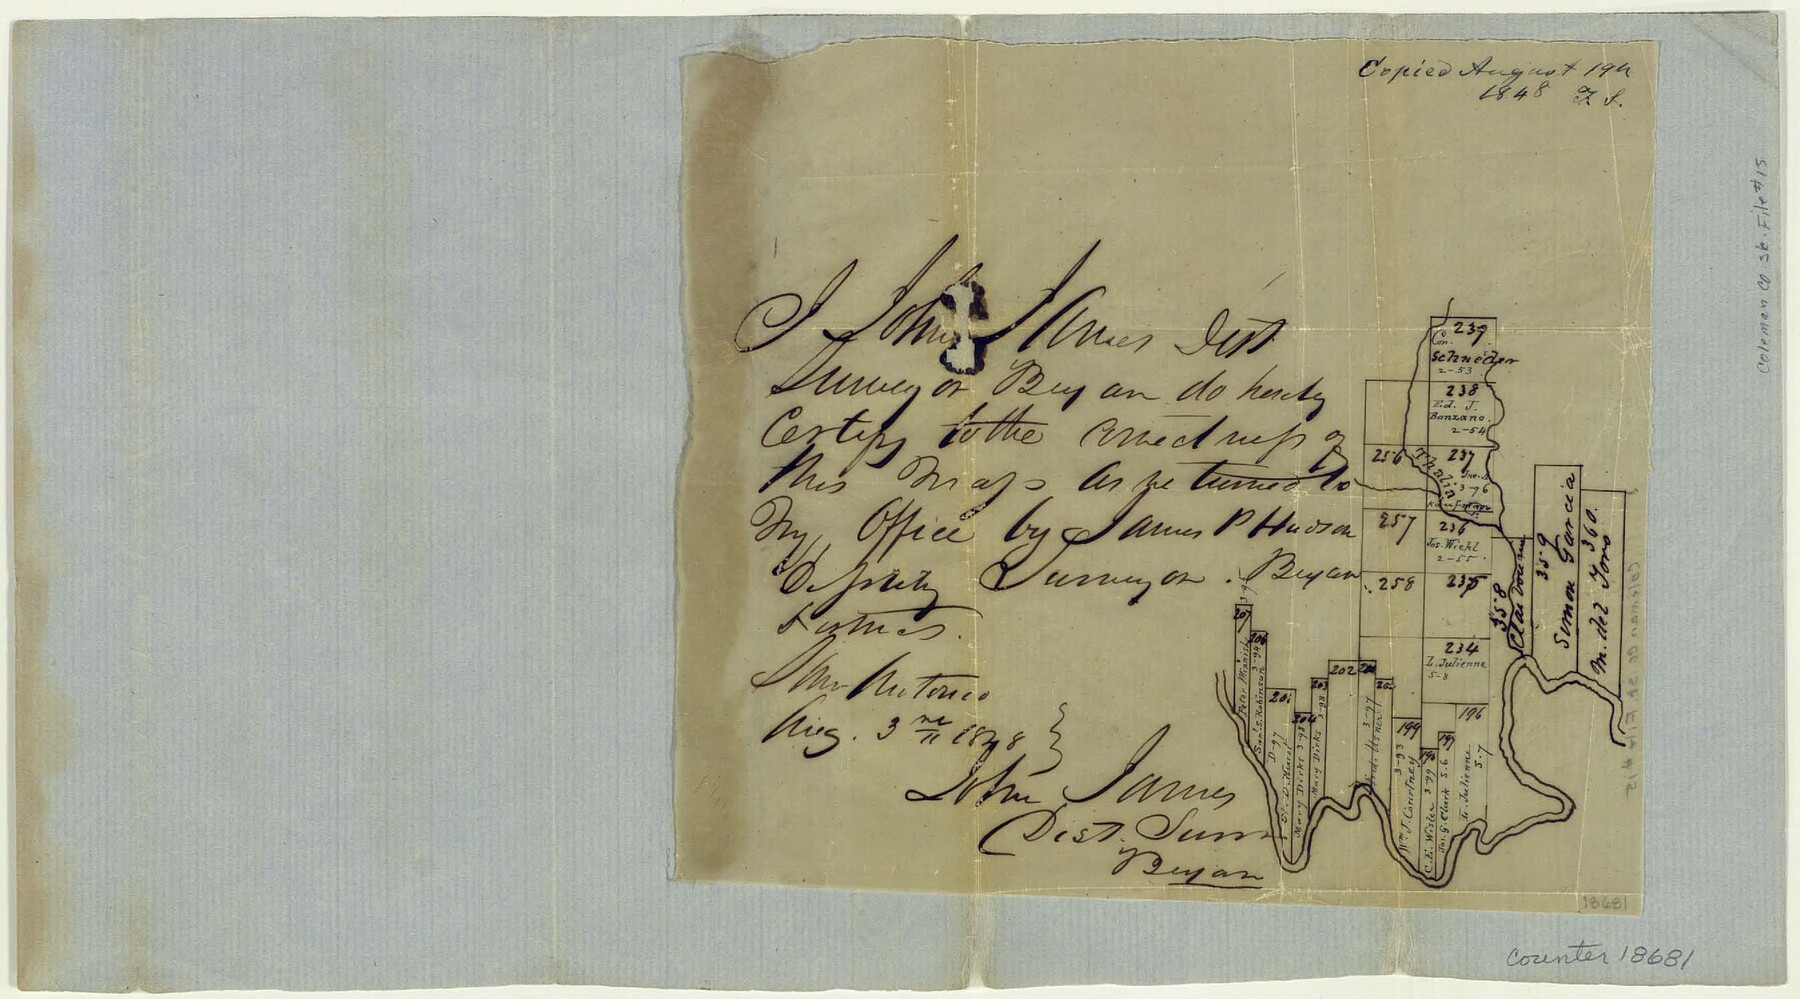 Copied August 19th
1848 F. S.
Coleman Co Sk. File #15
I John James Dist
Surveyor Bexar do hereby
Certify to the correctness of
this Map as returned to
My Office by James P Hudson
Deputy Surveyor. Bexar
District.
San Antonio
Aug. 3rd 1848
John James
Dist. Surv
Bexar
239
Con.
Schneider
2-53
238
Ed. J.
Bonzano.
2-54
256
237
3-96
257
236
Jos. Wiehl
2-55
258
235
234
L. Julienne
5-8
358
359
Simon Garcia
360.
M. del Toro
207
3-95
Peter Minnish
206
3-94
Saml. S. Robinson
D-97
204
Mary Dirks 3-98
203
Mary Dirks 3-98
202
3-97
199
3-93
Wm. J. Courtney
C. E. Wisler 3-99
197
Jas. G. Clark 5.6
196
L. Julienne
5.7
Coleman Co Sk File #15
18681
counter 18681